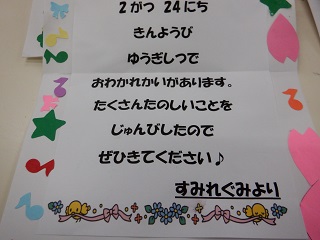 2がつ 24にち
きんようび
ゆうぎしつで
おわかれかいがあります。
たくさんたのしいことを
じゅんびしたので
ぜひきてください♪
すみれぐみより